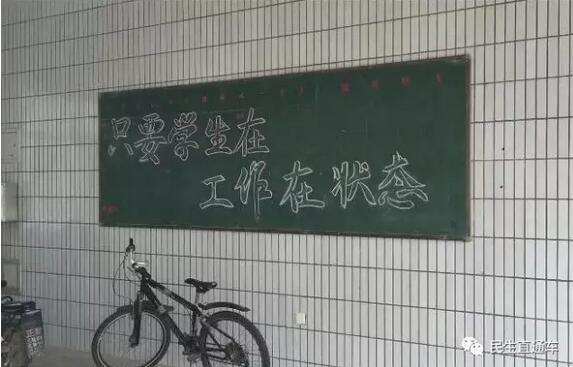 只要学生在
工作在状态
民生直通车